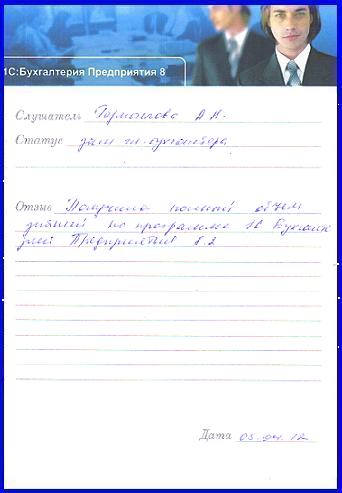 1С:Бухгалтерия Предприятия 8
Слушатель А.Н.
Статус зам гл. бухгалтера
Отзыв Получила полный объем
знаний по программе 1С Бухгал
Предприятия 8.2
Дата 05. 12